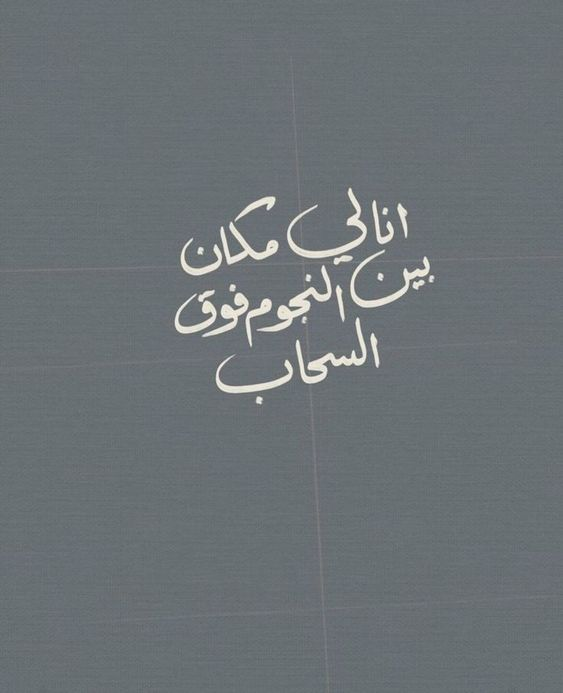 انا لي مكان
بين النجوم فوق
السحاب